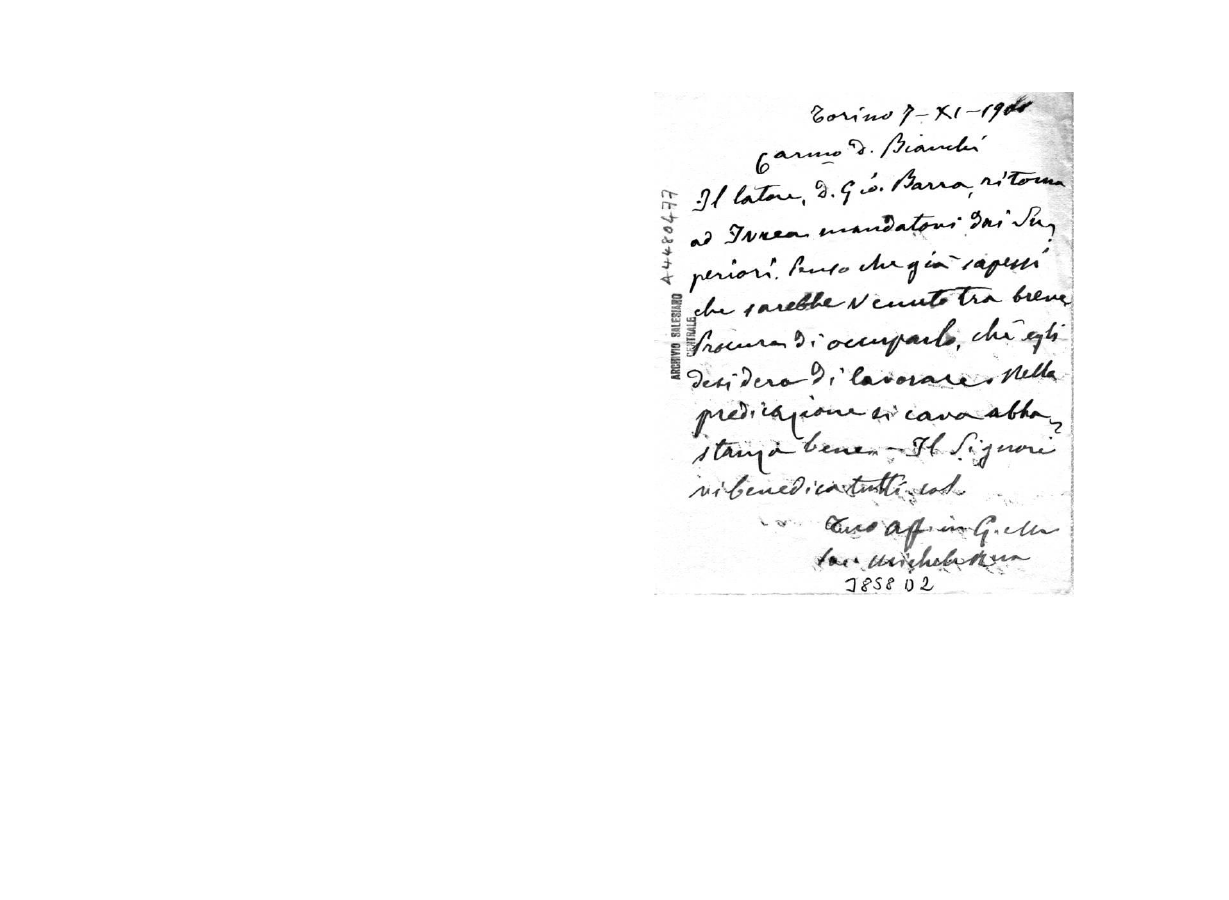 Torino 7-XI-190
Carmo D. Bianchi
Il latore, D. Gio. Barra, ritorna
ad Ivrea mandatovi dai Su,
periori. Penso che già sapessi
che sarebbe venuto tra breve
Procura di occuparlo, chè egli
desidera di lavorare. Nella
predicazione si cava abba,
stanza bene. - Il Signore
vi benedica tutti col
Tuo aff in G. e M
Sac. Michele Rua
J858 D2
A4480477
ARCHIVIO SALESIANO
CENTRALE